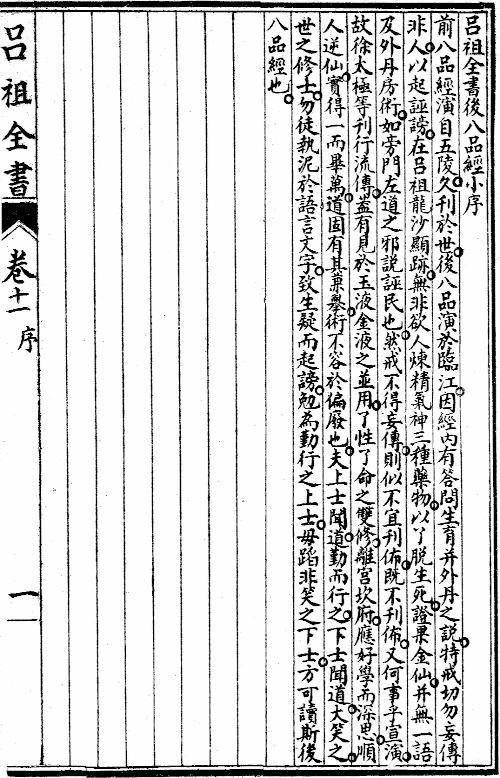 呂祖全書後八品經小序
前八品經演自五陵久刊於世後八品演於臨江因經內有答問生育并外丹之說特戒切勿妄傳
非人以起誣謗在呂祖龍沙顯跡無非欲人煉精氣神三種藥物以了脫生死證果金仙并無一語
及外丹房術如旁門左道之邪說誣民也然戒不得妄傳則似不宜刊佈既不刊佈又何事乎宣演
故徐太極等刊行流傳蓋有見於玉液金液之並用了性了命之雙修離宮坎府應好學而深思順
人逆仙實得一而畢萬道固有其兼舉術不容於偏廢也夫上士聞道勤而行之下士聞道大笑之
世之修士勿徒執泥於語言文字致生疑而起謗勉為勤行之上士毋蹈非笑之下士方可讀斯後
八品經也
呂祖全書 卷十一 序 一